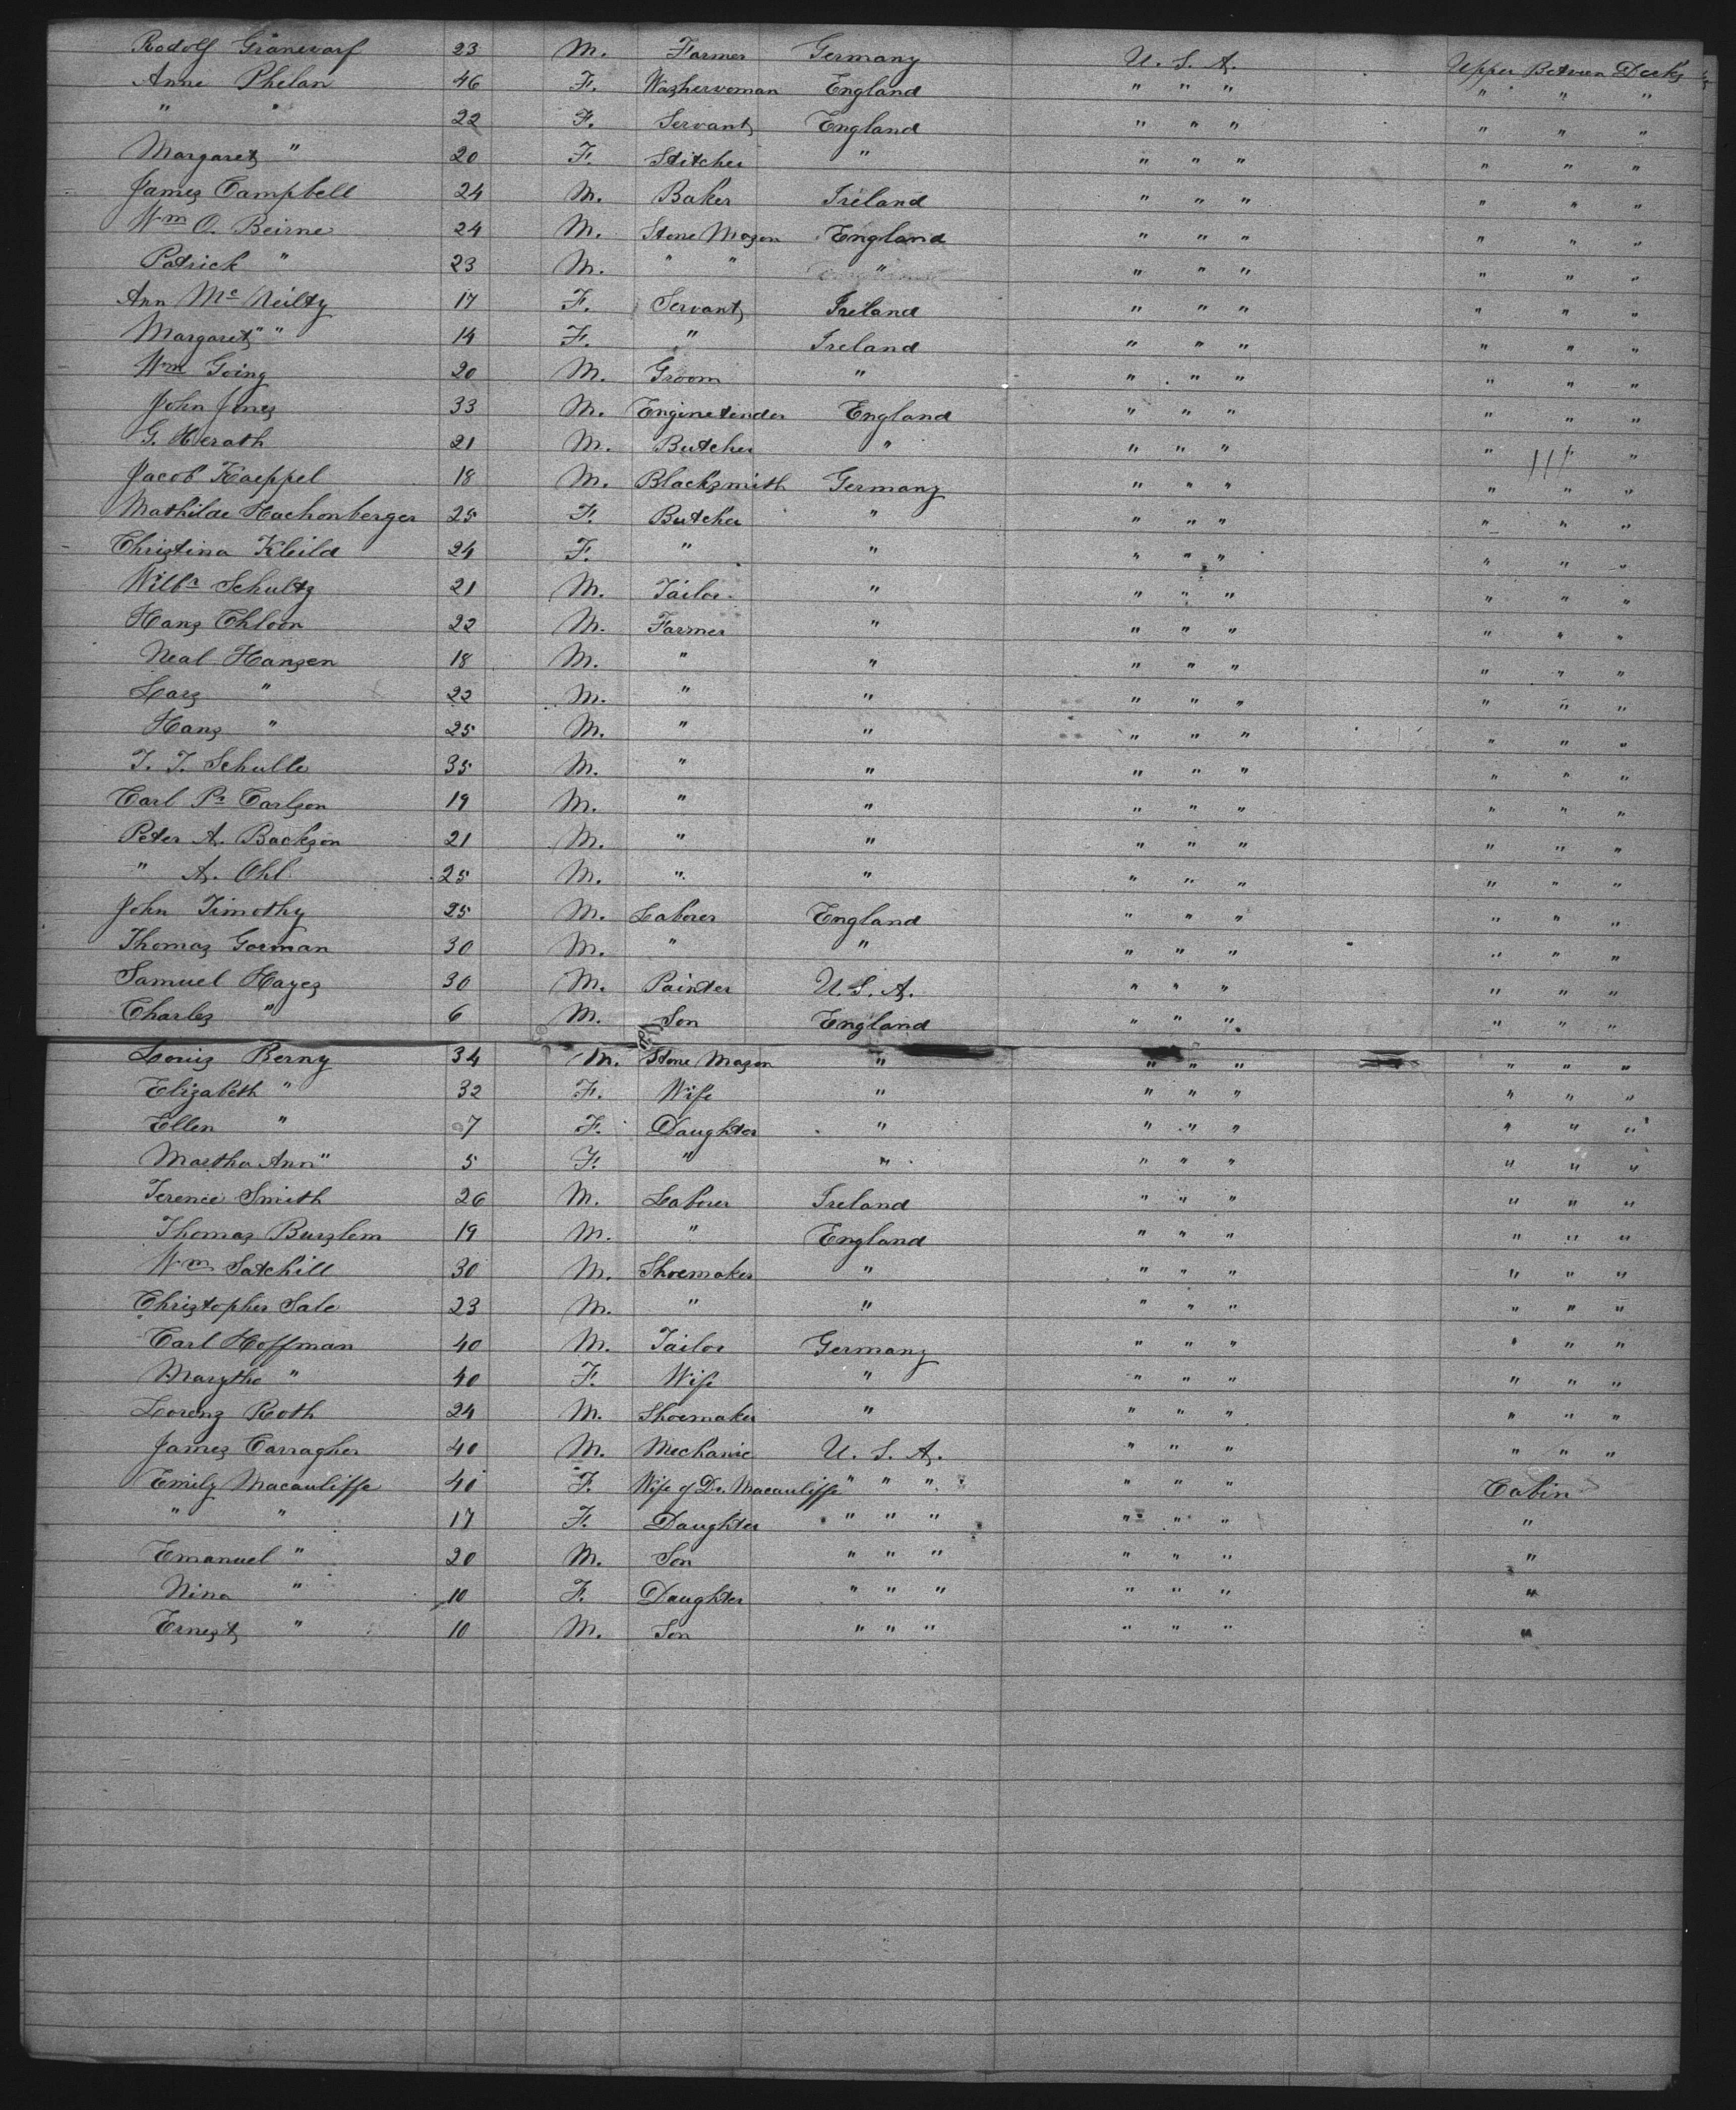 Rodolf Granevarf 23 M. Farmer Germany U. S. A. Upper Between Decks
Anne Phelan 46 F. Washerwoman England " " " " " "
" " 22 F. Servant England " " " " " "
Margaret " 20 F. Stitcher " " " " " " "
James Campbell 24 M. Baker Ireland " " " " " "
Wm O. Beirne 24 M. Stone Mason England " " " " " "
Patrick " 23 M. " " " " " " " " "
Ann Mc Neilty 17 F. Servant Ireland " " " " " "
Margaret " " 14 F. " Ireland " " " " " "
Wm Going 20 M. Groom " " " " " " "
John Jones 33 M. Enginetender England " " " " " "
G. Herath 21 M. Butcher " " " " " " "
Jacob Kaeppel 18 M. Blacksmith Germany " " " " " "
Mathilde Hachonberger 25 F. Butcher " " " " " " "
Christina Kleild 24 F. " " " " " " " "
Wilbr Schultz 21 M. Tailor " " " " " " "
Hans Chloon 22 M. Farmer " " " " " " "
Neal Hansen 18 M. " " " " " " " "
Lars " 22 M. " " " " " " " "
Hans " 25 M. " " " " " " " "
T. T. Schulle 35 M. " " " " " " " "
Carl Pr Carlson 19 M. " " " " " " " "
Peter A. Backson 21 M. " " " " " " " "
" A. Ohl 25 M. " " " " " " " "
John Timothy 25 M. Laborer England " " " " " "
Thomas Gorman 30 M. " " " " " " " "
Samuel Hayes 30 M. Painter U. S. A. " " " " " "
Charles " 6 M. Son England " " " " " "
Louis Berny 34 M. Stone Mason " " " " " " "
Elizabeth " 32 F. Wife " " " " " " "
Ellen " 7 F. Daughter " " " " " " "
Martha Ann " 5 F. " " " " " " " "
Terence Smith 26 M. Laborer Ireland " " " " " "
Thomas Burslem 19 M. " England " " " " " "
Wm Satchill 30 M. Shoemaker " " " " " " "
Christopher Sale 23 M. " " " " " " " "
Carl Hoffman 40 M. Tailor Germany " " " " " "
Marytha " 40 F. Wife " " " " " " "
Lorenz Roth 24 M. Shoemaker " " " " " " "
James Carragher 40 M. Mechanic U. S. A. " " " " " "
Emily Macauliffe 40 F. Wife of Dr. Macauliffe " " " " " " Cabin
" " 17 F. Daughter " " " " " " "
Emanuel " 20 M. Son " " " " " " "
Nina " 10 F. Daughter " " " " " " "
Ernest " 10 M. Son " " " " " " "